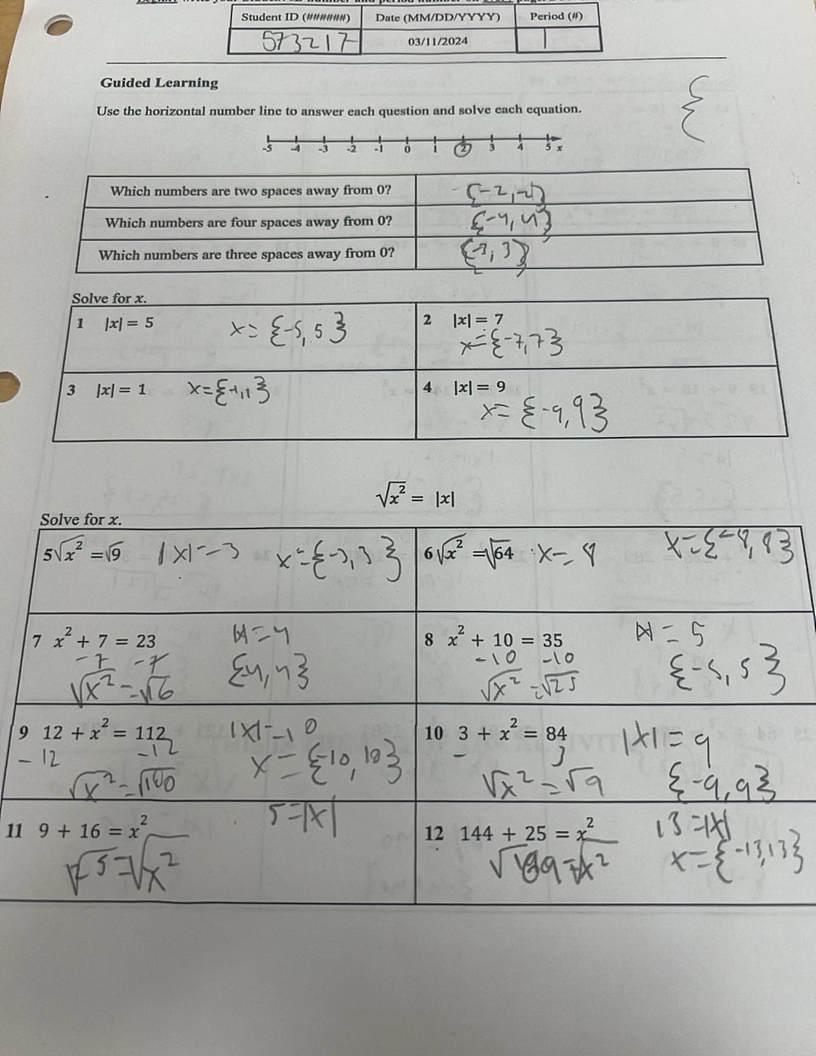 Student ID (######) Date (MM/DD/YYYY) Period (#)
573217 03/11/2024 1
Guided Learning
Use the horizontal number line to answer each question and solve each equation.
-5 -4 -3 -2 -1 0 1 2 3 4 5 x
Which numbers are two spaces away from 0? {-2, 2}
Which numbers are four spaces away from 0? {-4, 4}
Which numbers are three spaces away from 0? {-3, 3}
Solve for x.
1 |x| = 5 x = {-5, 5}
2 |x| = 7 x = {-7, 7}
3 |x| = 1 x = {-1, 1}
4 |x| = 9 x = {-9, 9}
√x² = |x|
Solve for x.
5 √x² = √9 |x| = 3 x = {-3, 3}
6 √x² = √64 x = 8 x = {-8, 8}
7 x² + 7 = 23 |x| = 4
-7 -7 {4, 4}
√x² = √6
8 x² + 10 = 35 |x| = 5
-10 -10 {-5, 5}
√x² = √25
9 12 + x² = 112 |x| = 10
-12 -12 x = {-10, 10}
√x² = √100
10 3 + x² = 84 |x| = 9
- 3
√x² = √9 {-9, 9}
11 9 + 16 = x² 5 = |x|
= √x²
12 144 + 25 = x² 13 = |x|
√169 = √x² x = {-13, 13}